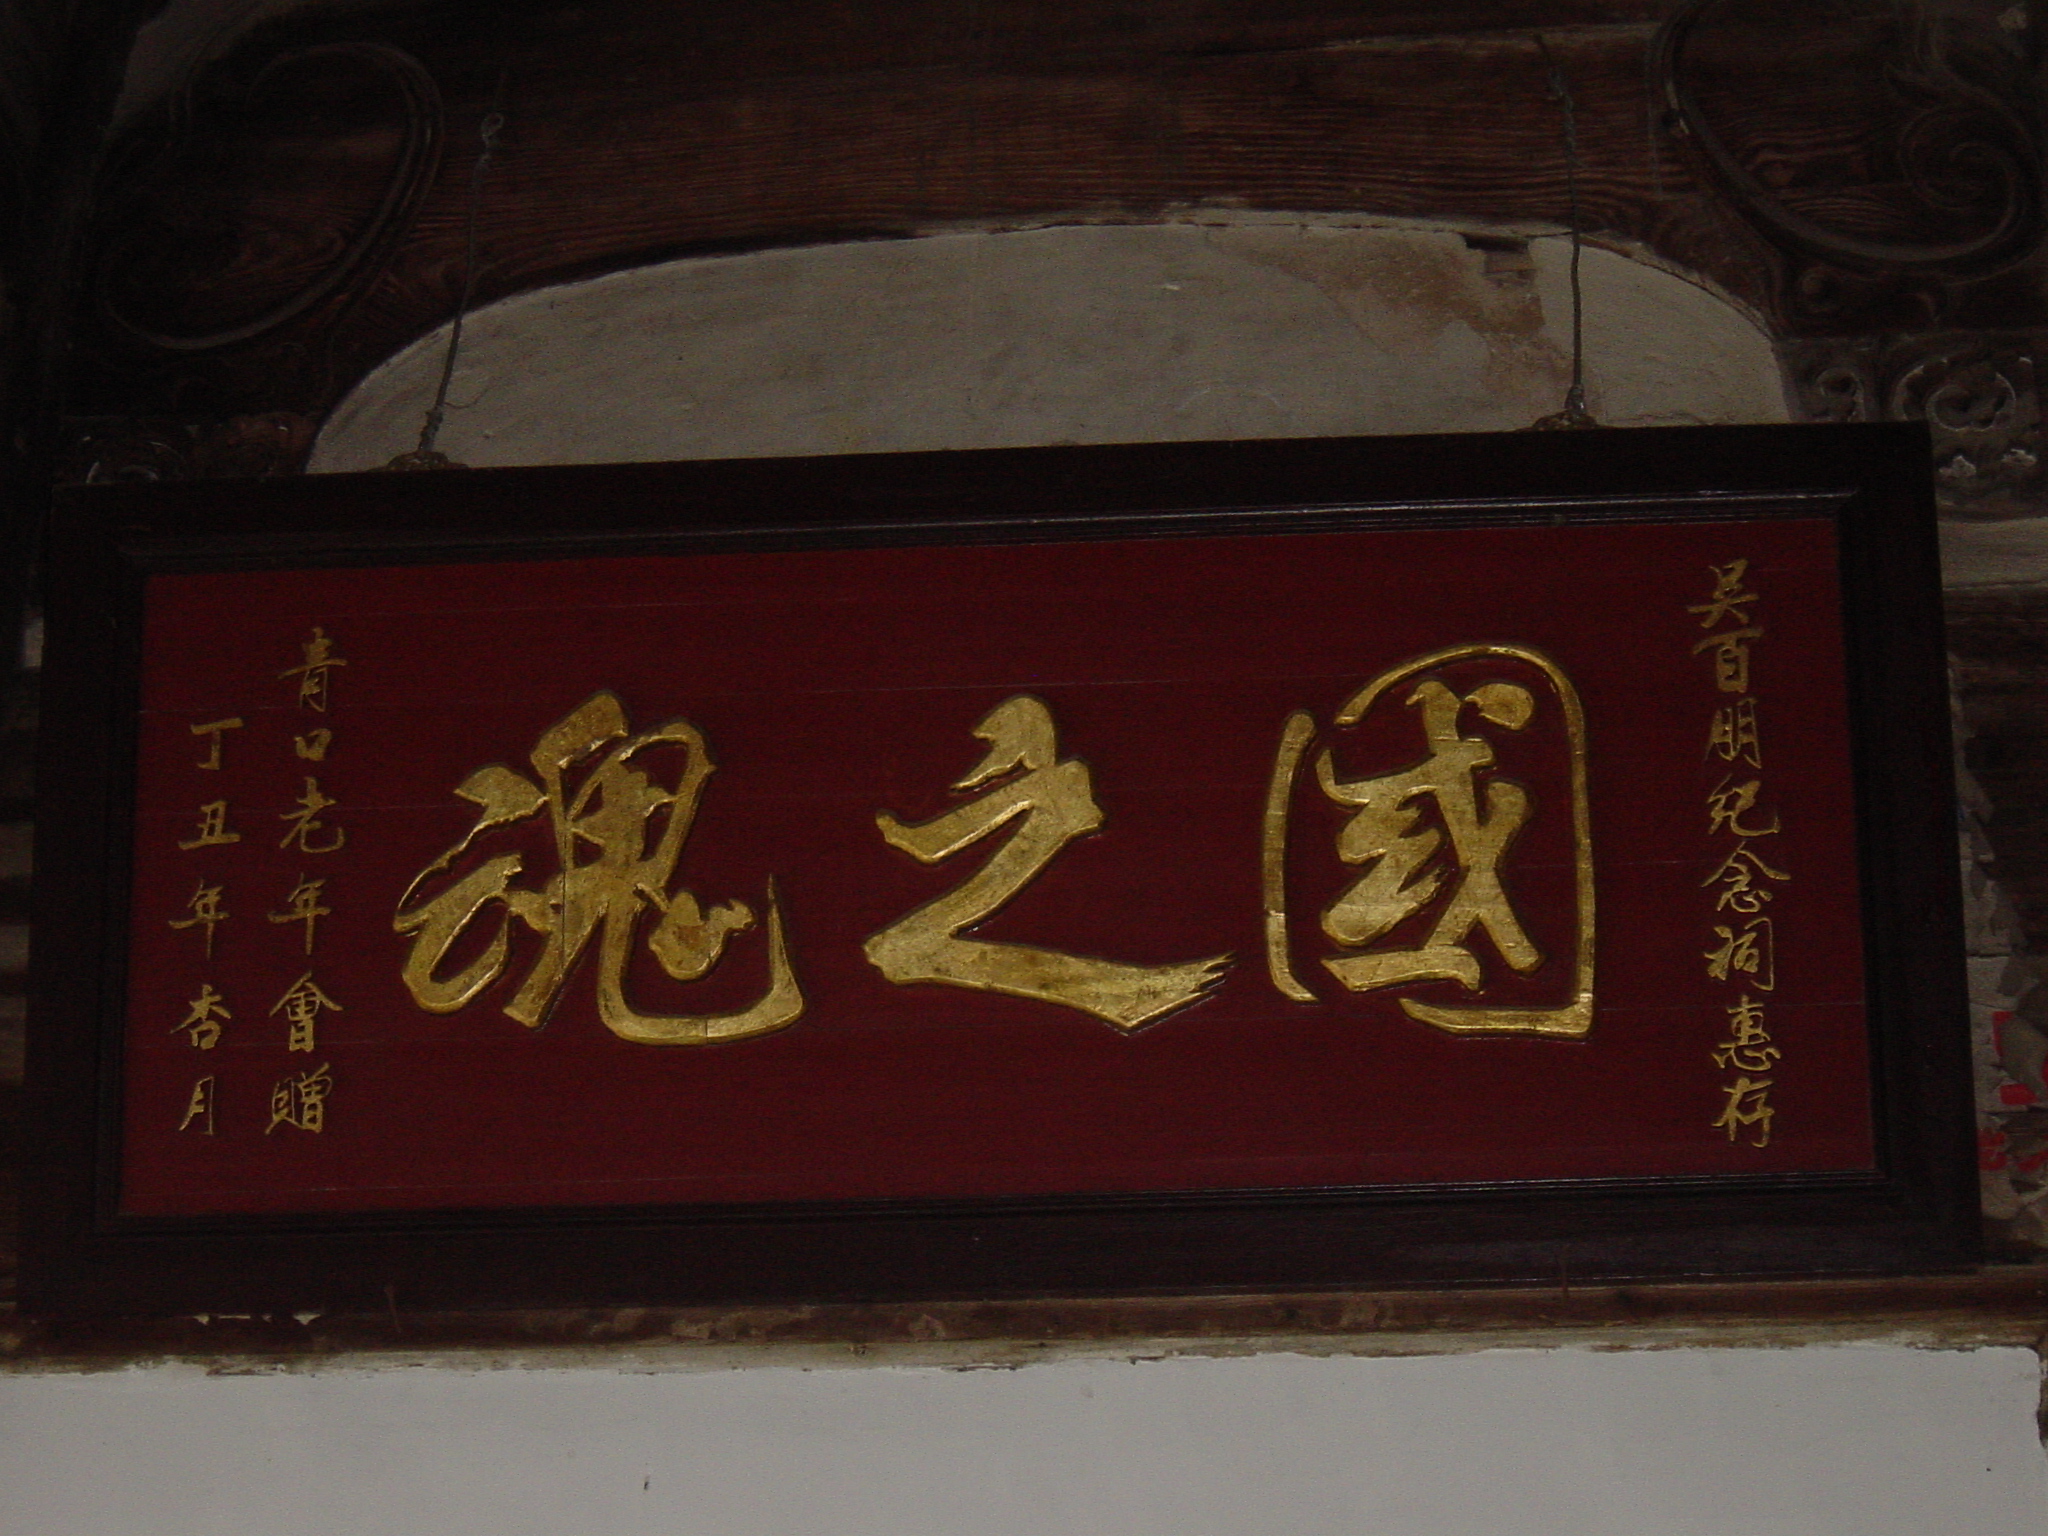 吴百朋纪念祠惠存
國之魂
青口老年會贈
丁丑年杏月